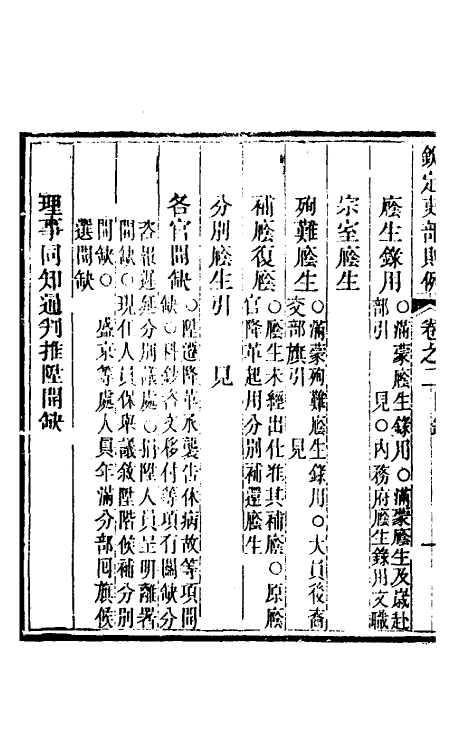 欽定吏部則例 卷之二 目錄 一
廕生錄用 ○滿蒙廕生錄用○滿蒙廕生及歲赴
部引 見○內務府廕生錄用文職
宗室廕生
殉難廕生 ○滿蒙殉難廕生錄用○大員後裔
交部旗引 見
補廕復廕 ○廕生未經出仕准其補廕○原廕
官降革起用分別補還廕生
分別廕生引 見
各官開缺 ○陞遷降革承襲告休病故等項開
缺○科鈔咨文移付等項行開缺分
咨報遲延分別議處○捐陞人員呈明離署
開缺○現任人員保舉議敘陞階候補分別
開缺○ 盛京等處人員年滿分部回旗候
選開缺
理事同知通判推陞開缺